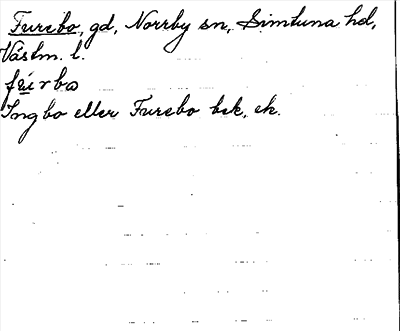 Furebo, gd, Norrby sn, Simtuna hd,
Västm. l.
fúrbo
Ingbo eller Furebo bek, ek.